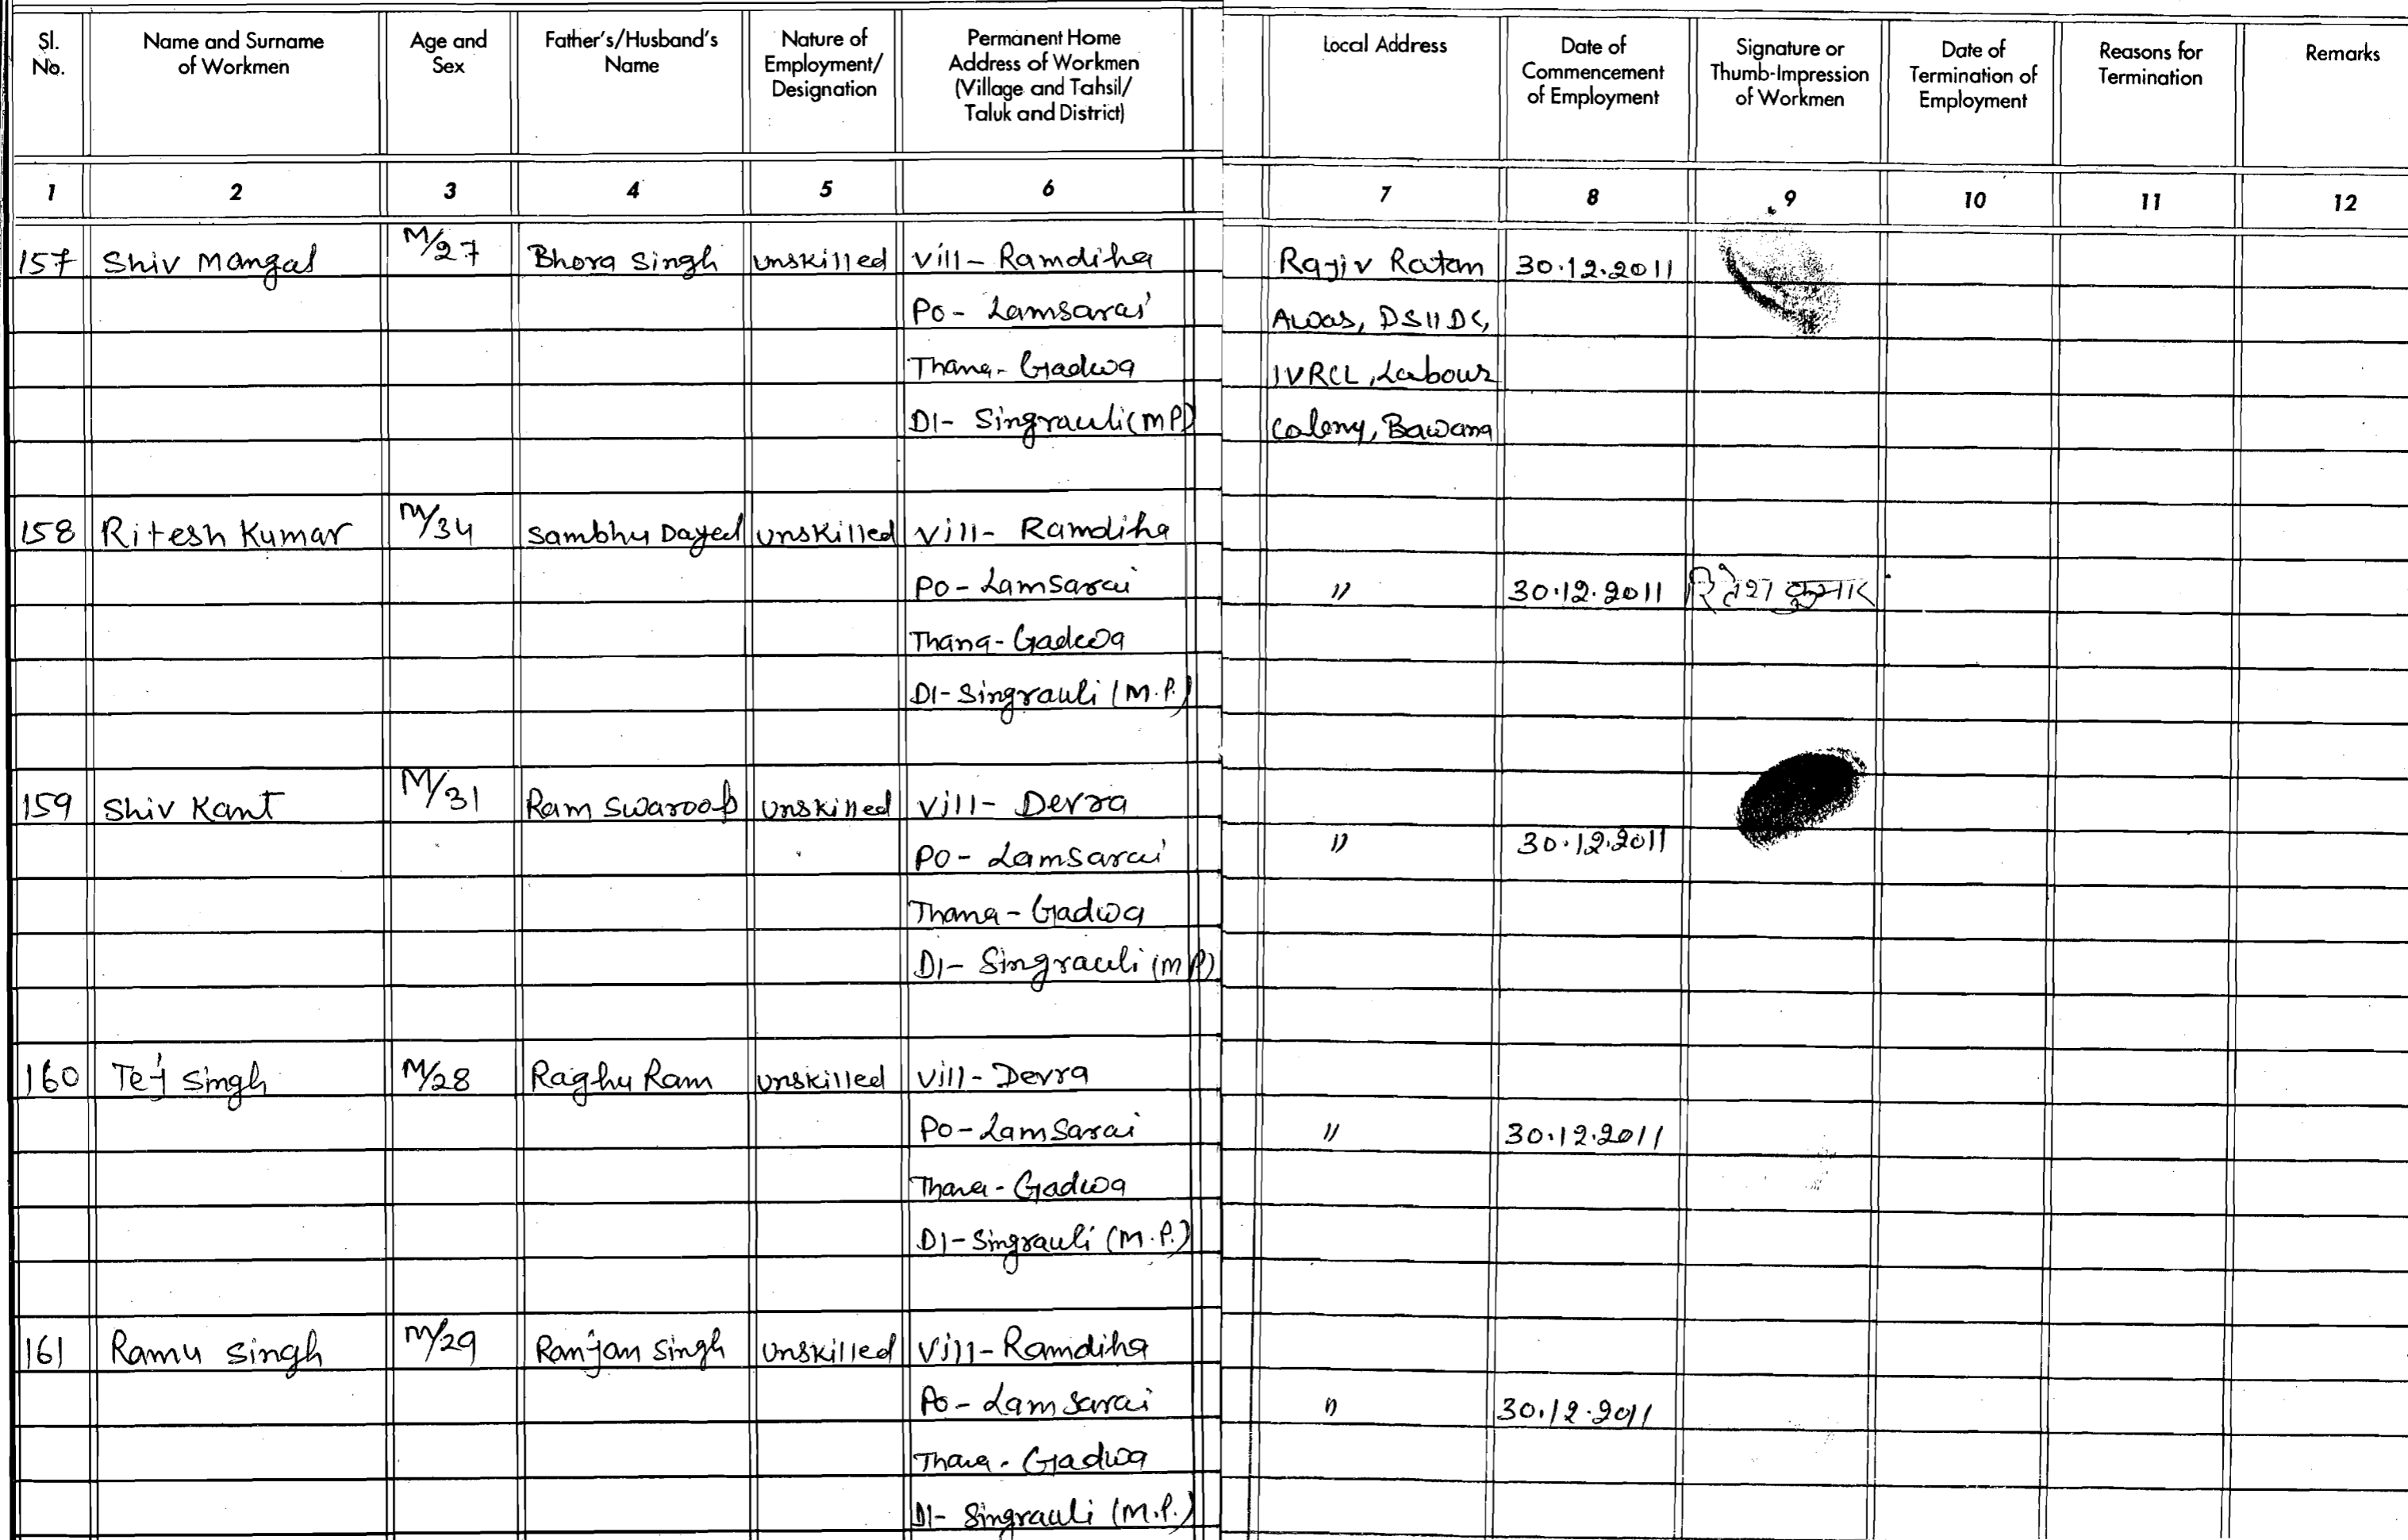 Sl. No. Name and Surname of Workmen Age and Sex Father's/Husband's Name Nature of Employment/ Designation Permanent Home Address of Workmen (Village and Tahsil/ Taluk and District) Local Address Date of Commencement of Employment Signature or Thumb-Impression of Workmen Date of Termination of Employment Reasons for Termination Remarks
1 2 3 4 5 6 7 8 9 10 11 12
157 Shiv Mangal M/27 Bhora Singh unskilled Vill- Ramdiha Rajiv Ratan 30.12.2011
Po- Lamsarai Awas, DSIIDC,
Thana- Gadwa IVRCL, Labour
DI- Singrauli (MP) Colony, Bawana
158 Ritesh Kumar M/34 Sambhu Dayal unskilled Vill- Ramdiha
Po- Lamsarai " 30.12.2011 रितेश कुमार
Thana- Gadwa
DI- Singrauli (M.P.)
159 Shiv Kant M/31 Ram Swaroop unskilled Vill- Devra
Po- Lamsarai " 30.12.2011
Thana- Gadwa
DI- Singrauli (MP)
160 Tej Singh M/28 Raghu Ram unskilled Vill- Devra
Po- Lamsarai " 30.12.2011
Thana- Gadwa
DI- Singrauli (M.P.)
161 Ramu Singh M/29 Ranjan Singh unskilled Vill- Ramdiha
Po- Lamsarai " 30.12.2011
Thana- Gadwa
DI- Singrauli (M.P.)